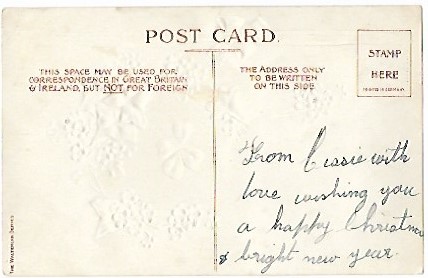 POST CARD
THIS SPACE MAY BE USED FOR
CORRESPONDENCE IN GREAT BRITAIN
& IRELAND, BUT NOT FOR FOREIGN
THE ADDRESS ONLY
TO BE WRITTEN
ON THIS SIDE
STAMP
HERE
PRINTED IN GERMANY
From Cissie with
love wishing you
a happy Christmas
& bright new year